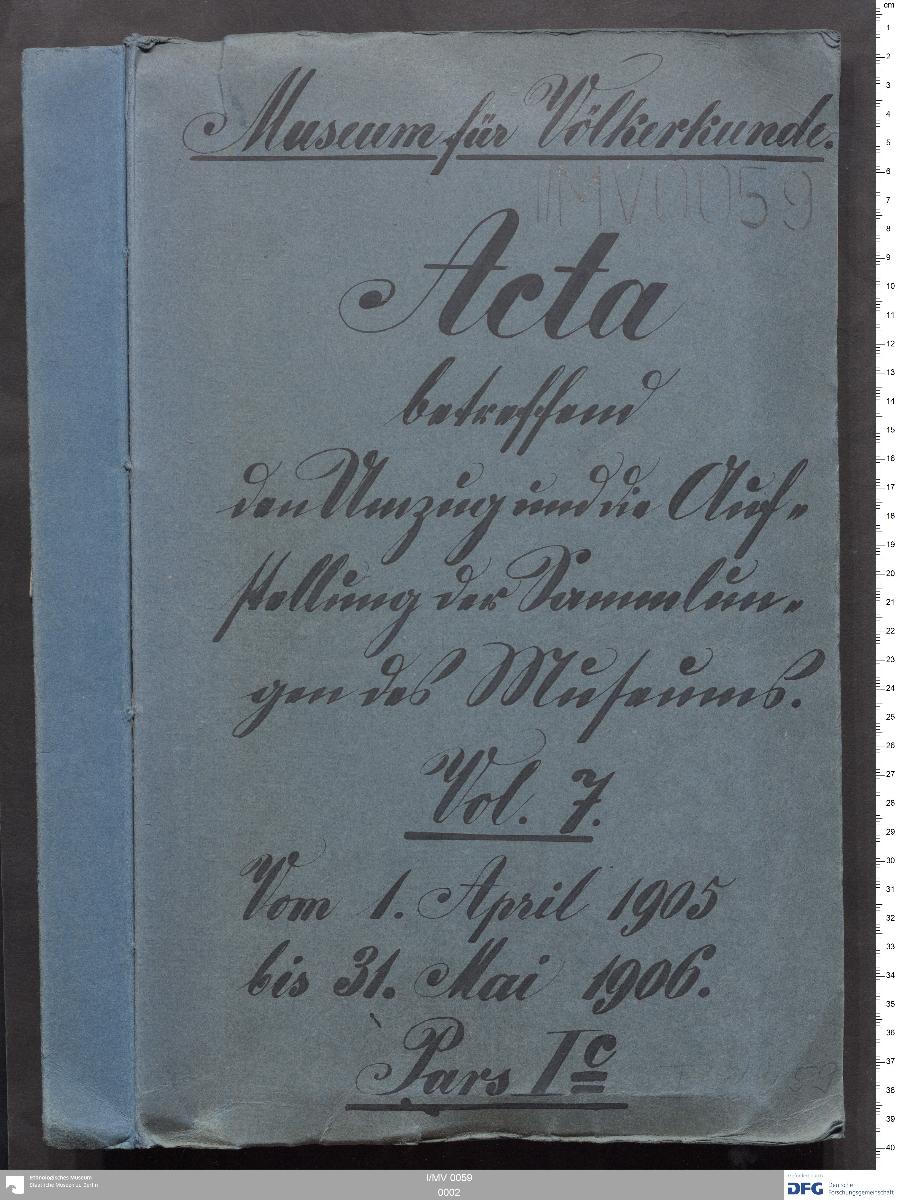 Museum für Völkerkunde.
I/MV 0059
Acta
betreffend
den Umzug und die Auf-
stellung der Sammlun-
gen des Museums.
Vol. 7.
Vom 1. April 1905
bis 31. Mai 1906.
Pars I c
cm
1
2
3
4
5
6
7
8
9
10
11
12
13
14
15
16
17
18
19
20
21
22
23
24
25
26
27
28
29
30
31
32
33
34
35
36
37
38
39
40
Ethnologisches Museum
Staatliche Museen zu Berlin
I/MV 0059
0002
DFG Deutsche
Forschungsgemeinschaft